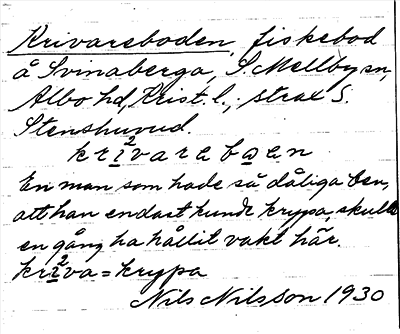 Krivareboden, fiskebod
å Svinaberga, S. Mellby sn,
Albo hd, Krist. l., strax S.
Stenshuvud.
kri²varebǫen
En man som hade så dåliga ben,
att han endast kunde krypa, skulle
en gång ha hållit vakt här.
kri²va = krypa
Nils Nilsson 1930